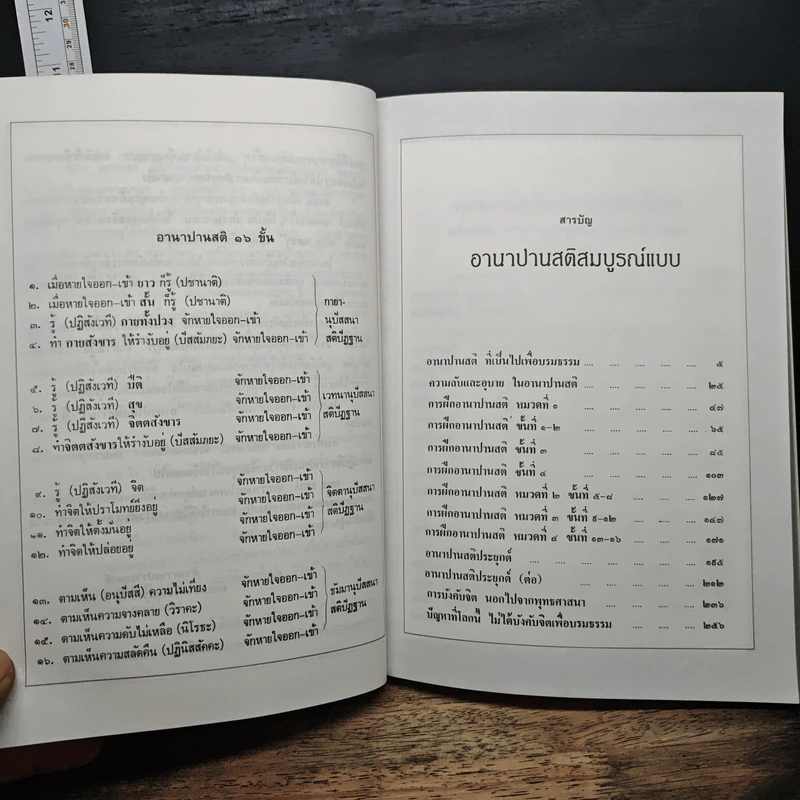 12
30
29
28
11
อานาปานสติ ๑๖ ชั้น
๑. เมื่อหายใจออก-เข้า ยาว ก็รู้ (ปชานาติ)
๒. เมื่อหายใจออก-เข้า สั้น ก็รู้ (ปชานาติ)
๓. รู้ (ปฏิสังเวที) กายทั้งปวง จักหายใจออก-เข้า
๔. ทำ กายสังขาร ให้รำงับอยู่ (ปัสสัมภยะ) จักหายใจออก-เข้า
กายา-
นุปัสสนา
สติปัฏฐาน
๕. รู้ (ปฏิสังเวที) ปีติ จักหายใจออก-เข้า
๖. รู้ (ปฏิสังเวที) สุข จักหายใจออก-เข้า
๗. รู้ (ปฏิสังเวที) จิตตสังขาร จักหายใจออก-เข้า
๘. ทำจิตตสังขารให้รำงับอยู่ (ปัสสัมภยะ) จักหายใจออก-เข้า
เวทนานุปัสสนา
สติปัฏฐาน
๙. รู้ (ปฏิสังเวที) จิต จักหายใจออก-เข้า
๑๐. ทำจิตให้ปราโมทย์ยิ่งอยู่ จักหายใจออก-เข้า
๑๑. ทำจิตให้ตั้งมั่นอยู่ จักหายใจออก-เข้า
๑๒. ทำจิตให้ปล่อยอยู่ จักหายใจออก-เข้า
จิตตานุปัสสนา
สติปัฏฐาน
๑๓. ตามเห็น (อนุปัสสี) ความไม่เที่ยง จักหายใจออก-เข้า
๑๔. ตามเห็นความจางคลาย (วิราคะ) จักหายใจออก-เข้า
๑๕. ตามเห็นความดับไม่เหลือ (นิโรธะ) จักหายใจออก-เข้า
๑๖. ตามเห็นความสลัดคืน (ปฏินิสสัคคะ) จักหายใจออก-เข้า
ธัมมานุปัสสนา
สติปัฏฐาน
สารบัญ
อานาปานสติสมบูรณ์แบบ
อานาปานสติ ที่เป็นไปเพื่อบรมธรรม .... .... .... .... .... ๕
ความลับและอุบาย ในอานาปานสติ .... .... .... .... ๒๕
การฝึกอานาปานสติ หมวดที่ ๑ .... .... .... .... ๔๗
การฝึกอานาปานสติ ขั้นที่ ๑-๒ .... .... .... .... ๖๕
การฝึกอานาปานสติ ขั้นที่ ๓ .... .... .... .... ๘๕
การฝึกอานาปานสติ ขั้นที่ ๔ .... .... .... .... ๑๐๓
การฝึกอานาปานสติ หมวดที่ ๒ ขั้นที่ ๕-๘ .... .... .... ๑๒๗
การฝึกอานาปานสติ หมวดที่ ๓ ขั้นที่ ๙-๑๒ .... .... .... ๑๔๗
การฝึกอานาปานสติ หมวดที่ ๔ ขั้นที่ ๑๓-๑๖ .... .... .... ๑๗๑
อานาปานสติประยุกต์ .... .... .... .... .... ๑๙๕
อานาปานสติประยุกต์ (ต่อ) .... .... .... .... ๒๑๒
การบังคับจิต นอกไปจากพุทธศาสนา .... .... .... .... ๒๓๖
ปัญหาที่โลกนี้ ไม่ได้บังคับจิตเพื่อบรมธรรม .... .... .... ๒๕๖